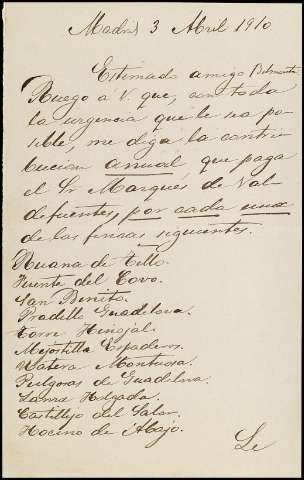 Madrid 3 Abril 1910
Estimado amigo Belmonte
Ruego a V. que, con toda
la urgencia que le sea po-
sible, me diga la contri-
bucion anual que paga
el Sr Marqués de Val-
defuentes, por cada una
de las fincas siguientes.
Ruana de Tello.
Fuente del Corvo.
San Benito.
Pradillo Guadelova.
Torre Hinojal.
Mejostilla Espadero.
Matera Montuosa.
Pulgosas de Guadelva.
Holgada.
Castillejo del Salor.
Hocino de Abajo.